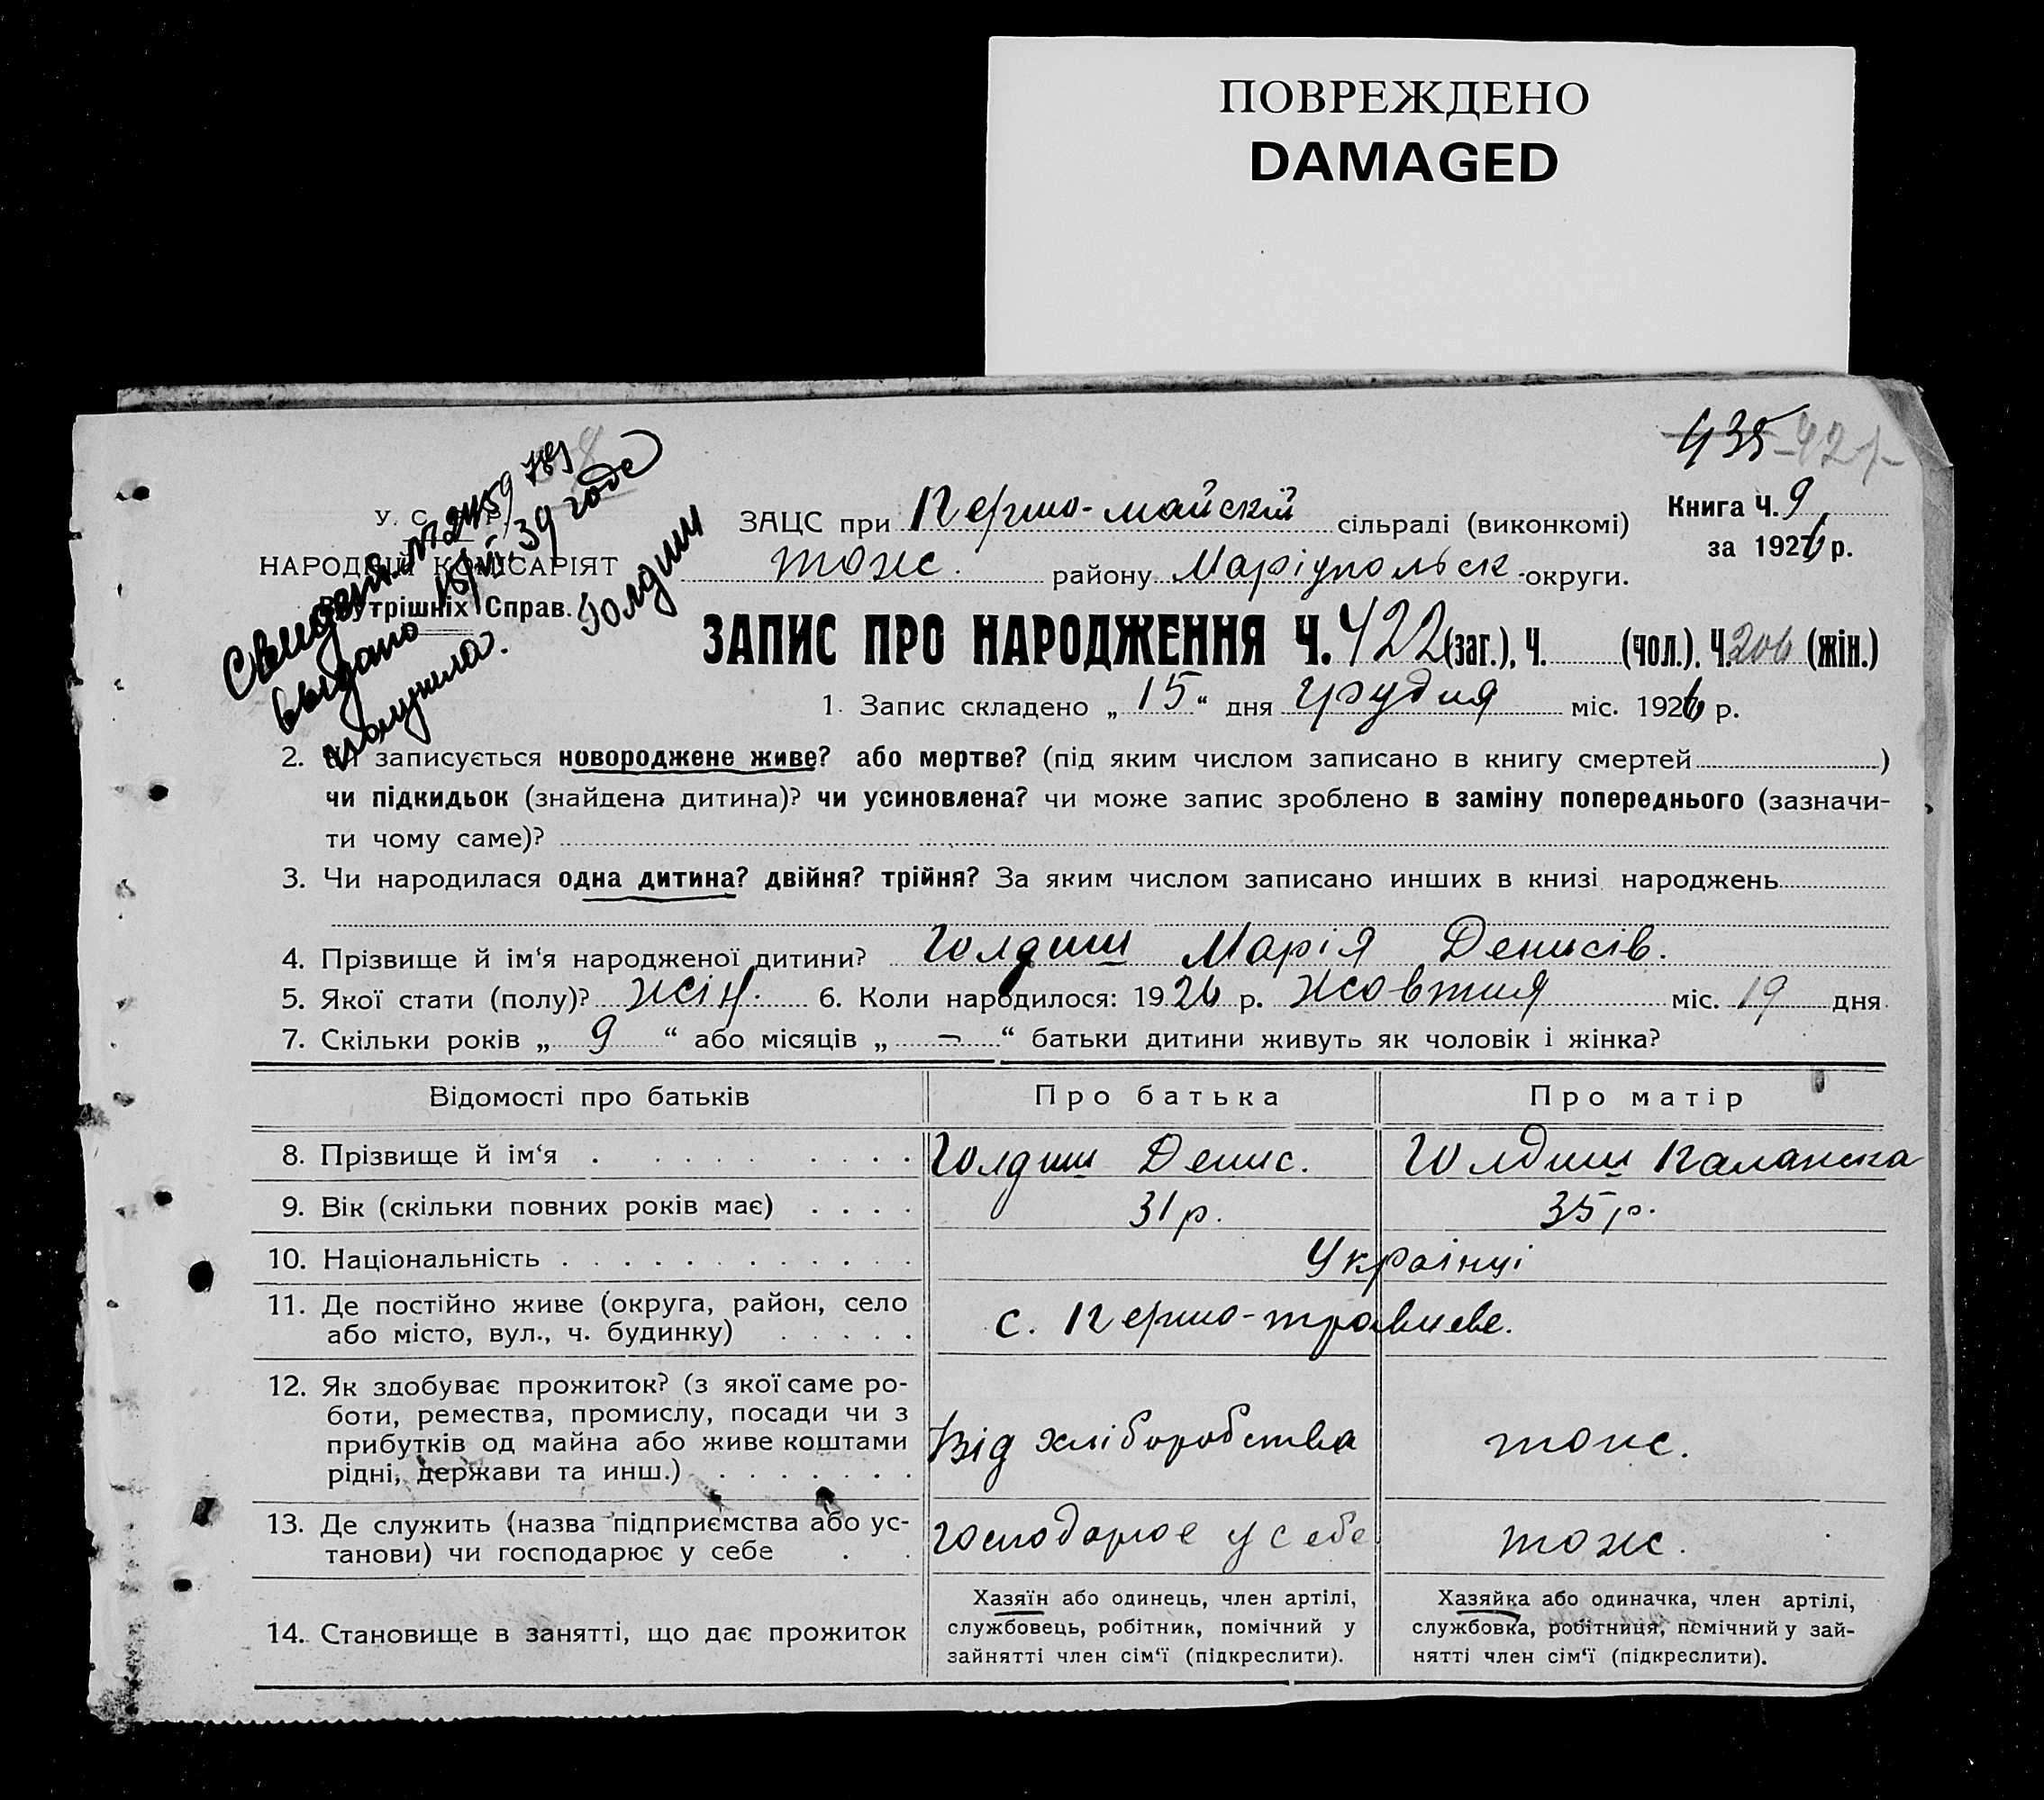 ПОВРЕЖДЕНО
DAMAGED
435 421
Свидет. № 2459
выдано 15/VI 39 года
получила. Голдыш
У. С. Р. Р.
НАРОДНІЙ КОМІСАРІЯТ
Внутрішніх Справ.
ЗАЦС при Першо-майскій сільраді (виконкомі)
тож. району Маріупольск округи.
Книга Ч. 9
за 1926 р.
ЗАПИС ПРО НАРОДЖЕННЯ Ч. 422 (заг.), Ч. (чол.). Ч. 206 (жін.)
1. Запис складено „ 15 “ дня грудня міс. 1926 р.
2. Чи записується новороджене живе? або мертве? (під яким числом записано в книгу смертей )
чи підкидьок (знайдена дитина)? чи усиновлена? чи може запис зроблено в заміну попереднього (зазначи-
ти чому саме)?
3. Чи народилася одна дитина? двійня? трійня? За яким числом записано инших в книзі народжень
4. Прізвище й ім‘я народженої дитини? Голдиш Марія Денисів.
5. Якої стати (полу)? жін. 6. Коли народилося: 1926 р. жовтня міс. 19 дня
7. Скільки років „ 9 “ або місяців „ - “ батьки дитини живуть як чоловік і жінка?
Відомості про батьків Про батька Про матір
8. Прізвище й ім‘я Голдиш Денис. Голдиш
9. Вік (скільки повних років має) 31 р. 35 р.
10. Національність Украінці
11. Де постійно живе (округа, район, село
або місто, вул., ч. будинку)
с. Першо-травневе.
12. Як здобуває прожиток? (з якої саме ро-
боти, ремества, промислу, посади чи з
прибутків од майна або живе коштами
рідні, держави та инш.)
Від хліборобства тож.
13. Де служить (назва підприємства або ус-
танови) чи господарює у себе
господарює у себе тож.
14. Становище в занятті, що дає прожиток
Хазяїн або одинець, член артілі,
службовець, робітник, помічний у
зайнятті член сім‘ї (підкреслити).
Хазяйка або одиначка, член артілі,
службовка, робітниця, помічний у зай-
нятті член сім‘ї (підкреслити).